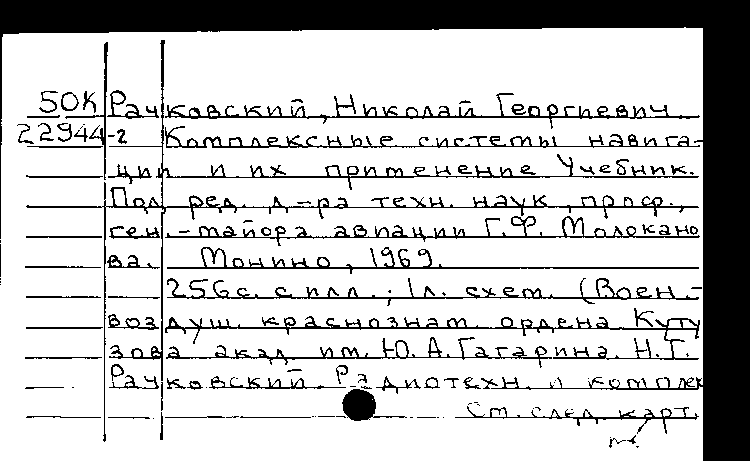 50К Рачковский, Николай Георгиевич.
22944-2 Комплексные системы навига-
ции и их применение Учебник.
Под ред. д-ра техн. наук, проф.,
ген.-майора авиации Г.Ф. Молокано
ва. Монино, 1969.
256с. с илл.; 1л. схем. (Воен.-
воздуш. краснознам. ордена Куту
зова акад. им. Ю.А. Гагарина. Н.Г.
Рачковский. Радиотехн. и комплек
См. след. карт.